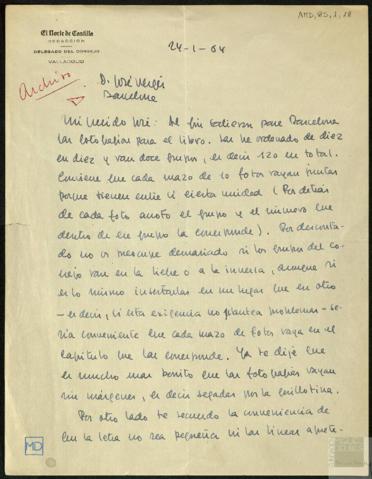 AMD,85,1,18
El Norte de Castilla
REDACCIÓN
DELEGADO DEL CONSEJO
VALLADOLID
24-1-64
Archivo
D. José Vergés
Barcelona
Mi querido José: Al fin salieron para Barcelona
las fotos habias para el libro. Las he ordenado de diez
en diez y van doce grupos, es decir 120 en total.
Conviene que cada mazo de 10 fotos vayan juntas
porque tienen entre sí cierta unidad (Por detrás
de cada foto anoto el grupo y el número que
dentro de ese grupo la corresponde). Por descontado
no os preocupe demasiado si los grupos del conejo
van en la liebre o a la inversa, aunque si
es lo mismo insertarlas en un lugar que en otro
—es decir, si esta exigencia no plantea problemas— sería
conveniente que cada mazo de fotos vaya en el
capítulo que las corresponde. Ya te dije que
es mucho mas bonito que las fotos habias vayan
sin márgenes, es decir segadas por la guillotina.
Por otro lado te recuerdo la conveniencia de
que la letra no sea pequeña ni las líneas apreta-
MD